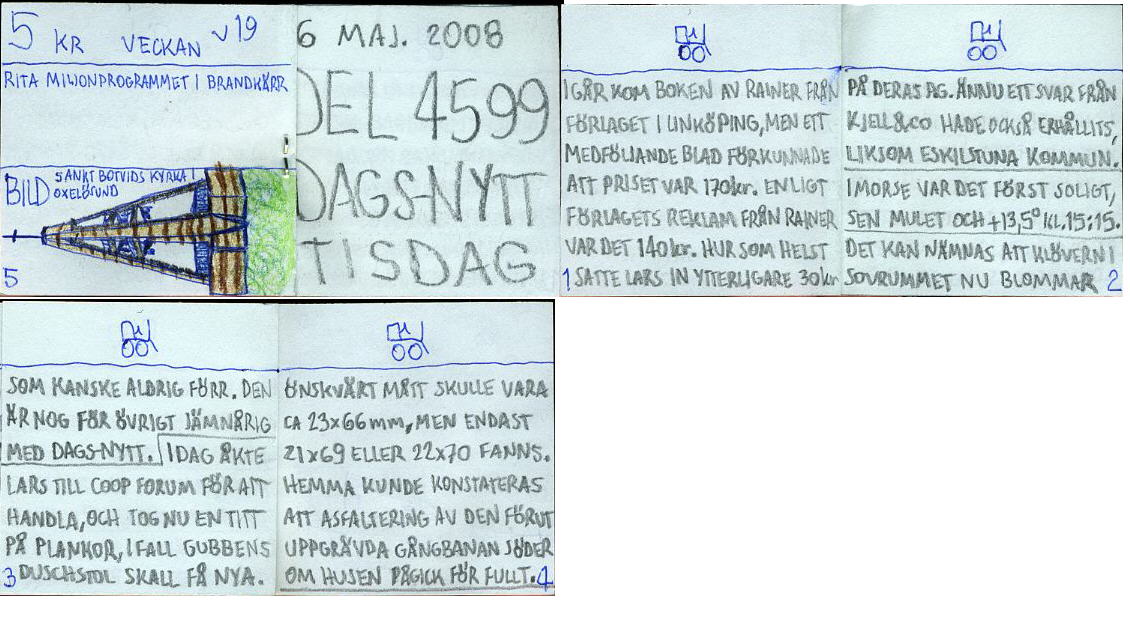 5 KR VECKAN V19
RITA MILJONPROGRAMMET I BRANDKÄRR
BILD SANKT BOTVIDS KYRKA I
OXELÖSUND
5
6 MAJ. 2008
DEL 4599
DAGS-NYTT
TISDAG
IGÅR KOM BOKEN AV RAINER FRÅN
FÖRLAGET I LINKÖPING, MEN ETT
MEDFÖLJANDE BLAD FÖRKUNNADE
ATT PRISET VAR 170kr. ENLIGT
FÖRLAGETS REKLAM FRÅN RAINER
VAR DET 140kr. HUR SOM HELST
1 SATTE LARS IN YTTERLIGARE 30kr
PÅ DERAS PG. ÄNNU ETT SVAR FRÅN
KJELL&CO HADE OCKSÅ ERHÅLLITS,
LIKSOM ESKILSTUNA KOMMUN.
I MORSE VAR DET FÖRST SOLIGT,
SEN MULET OCH +13,5° KL.15:15.
DET KAN NÄMNAS ATT KLÖVERN I
SOVRUMMET NU BLOMMAR 2
SOM KANSKE ALDRIG FÖRR. DEN
ÄR NOG FÖR ÖVRIGT JÄMNÅRIG
MED DAGS-NYTT. IDAG ÅKTE
LARS TILL COOP FORUM FÖR ATT
HANDLA, OCH TOG NU EN TITT
PÅ PLANKOR, IFALL GUBBENS
3 DUSCHSTOL SKALL FÅ NYA.
ÖNSKVÄRT MÅTT SKULLE VARA
CA 23x66mm, MEN ENDAST
21x69 ELLER 22x70 FANNS.
HEMMA KUNDE KONSTATERAS
ATT ASFALTERING AV DEN FÖRUT
UPPGRÄVDA GÅNGBANAN SÖDER
OM HUSEN PÅGICK FÖR FULLT. 4